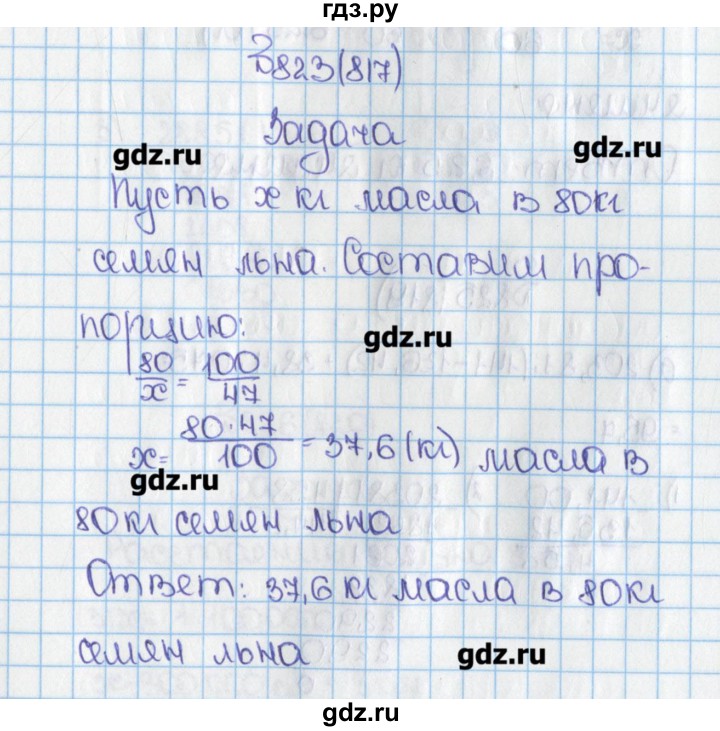 гдз.ру
№823(817)
Задача
gdz.ru
gdz.ru
Пусть х кг масла в 80кг
семян льна. Составим про-
порцию:
gdz.ru
80/х = 100/47
х = 80·47/100 = 37,6 (кг) масла в
gdz.ru
80кг семян льна
Ответ: 37,6 кг масла в 80кг
семян льна
gdz.ru
gdz.ru